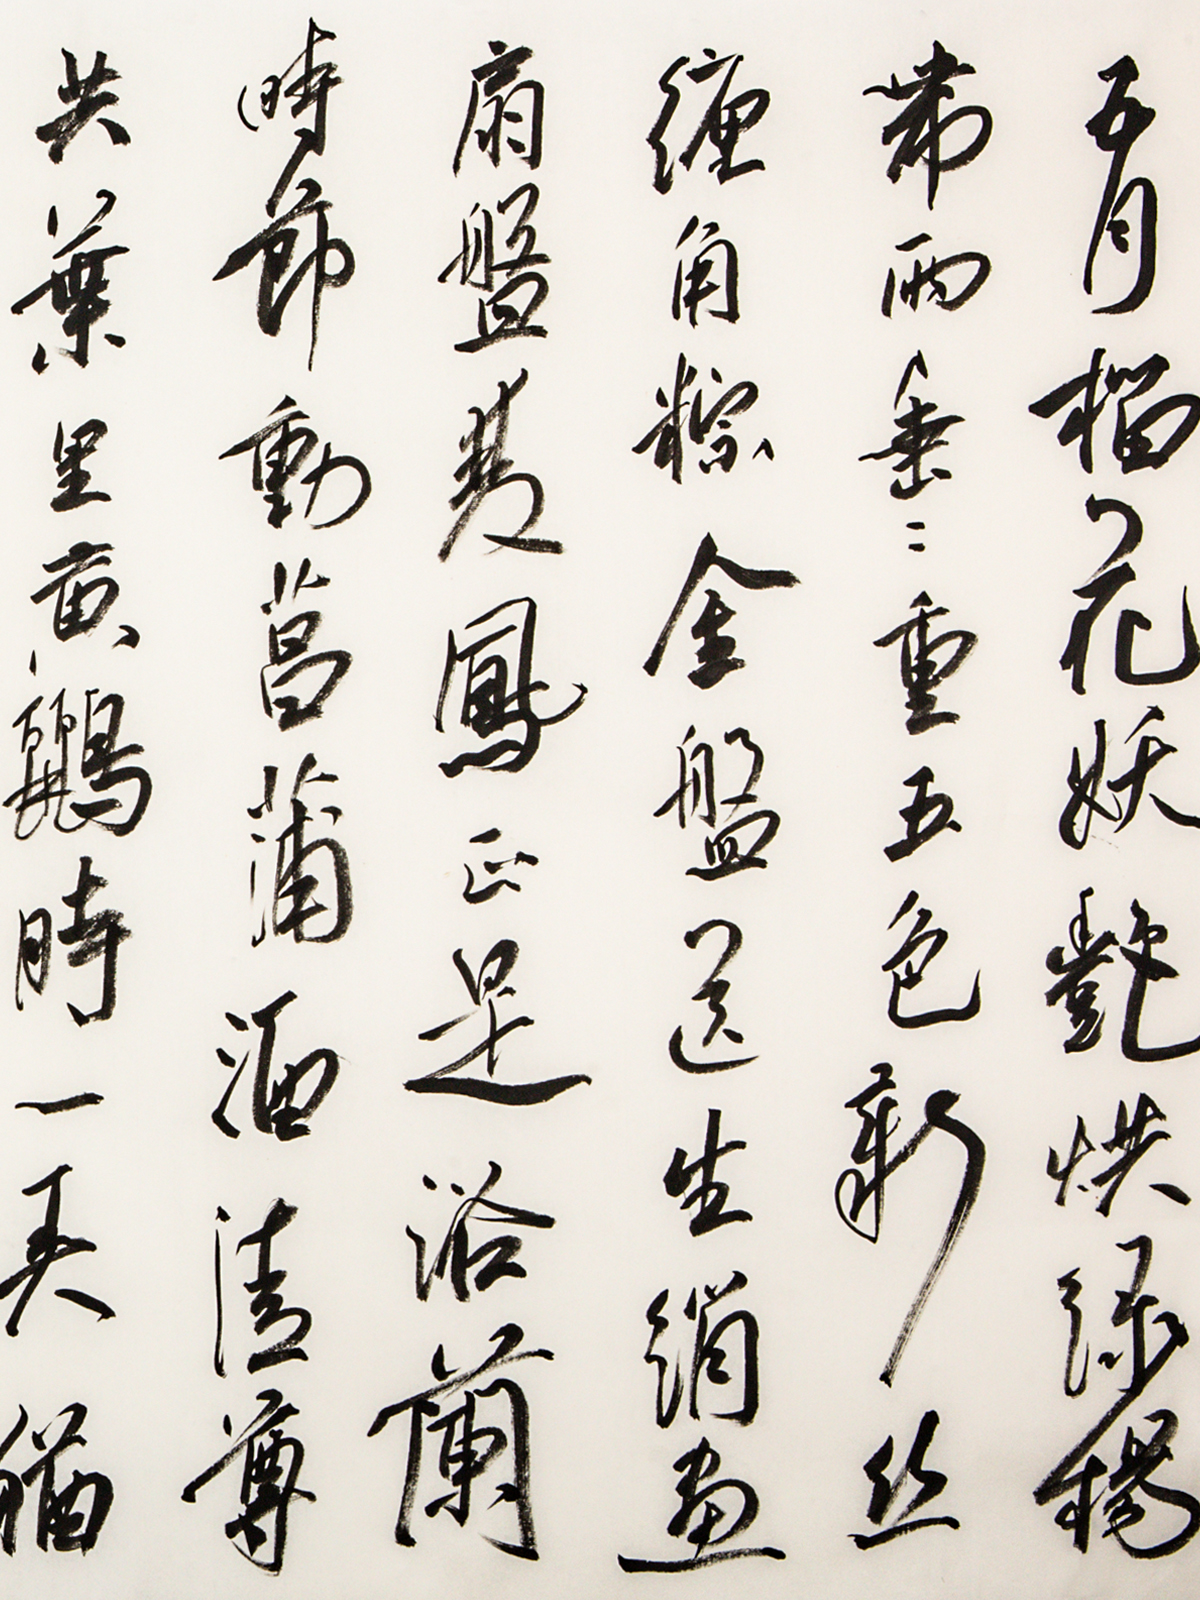 五月榴花妖艷烘绿楊
帶雨垂〻重五色新丝
缠角粽金盤送生绡画
扇盤雙鳳正是浴蘭
時節動菖蒲酒清尊
共葉里黄鸝時一弄猶